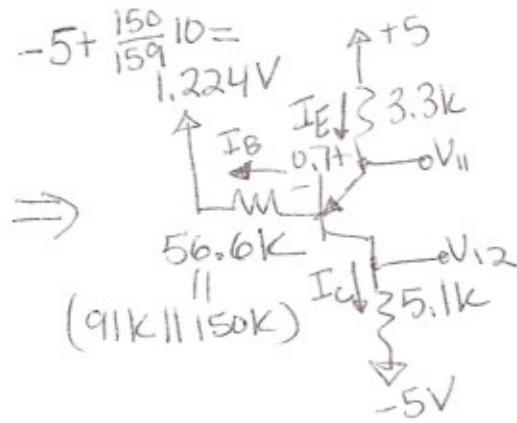 -5 + 150/159 10 =
1.224V
+5
I_E
3.3k
I_B
0.7+
-
V11
⇒
56.6k
||
(91k||150k)
I_C
V12
5.1k
-5V